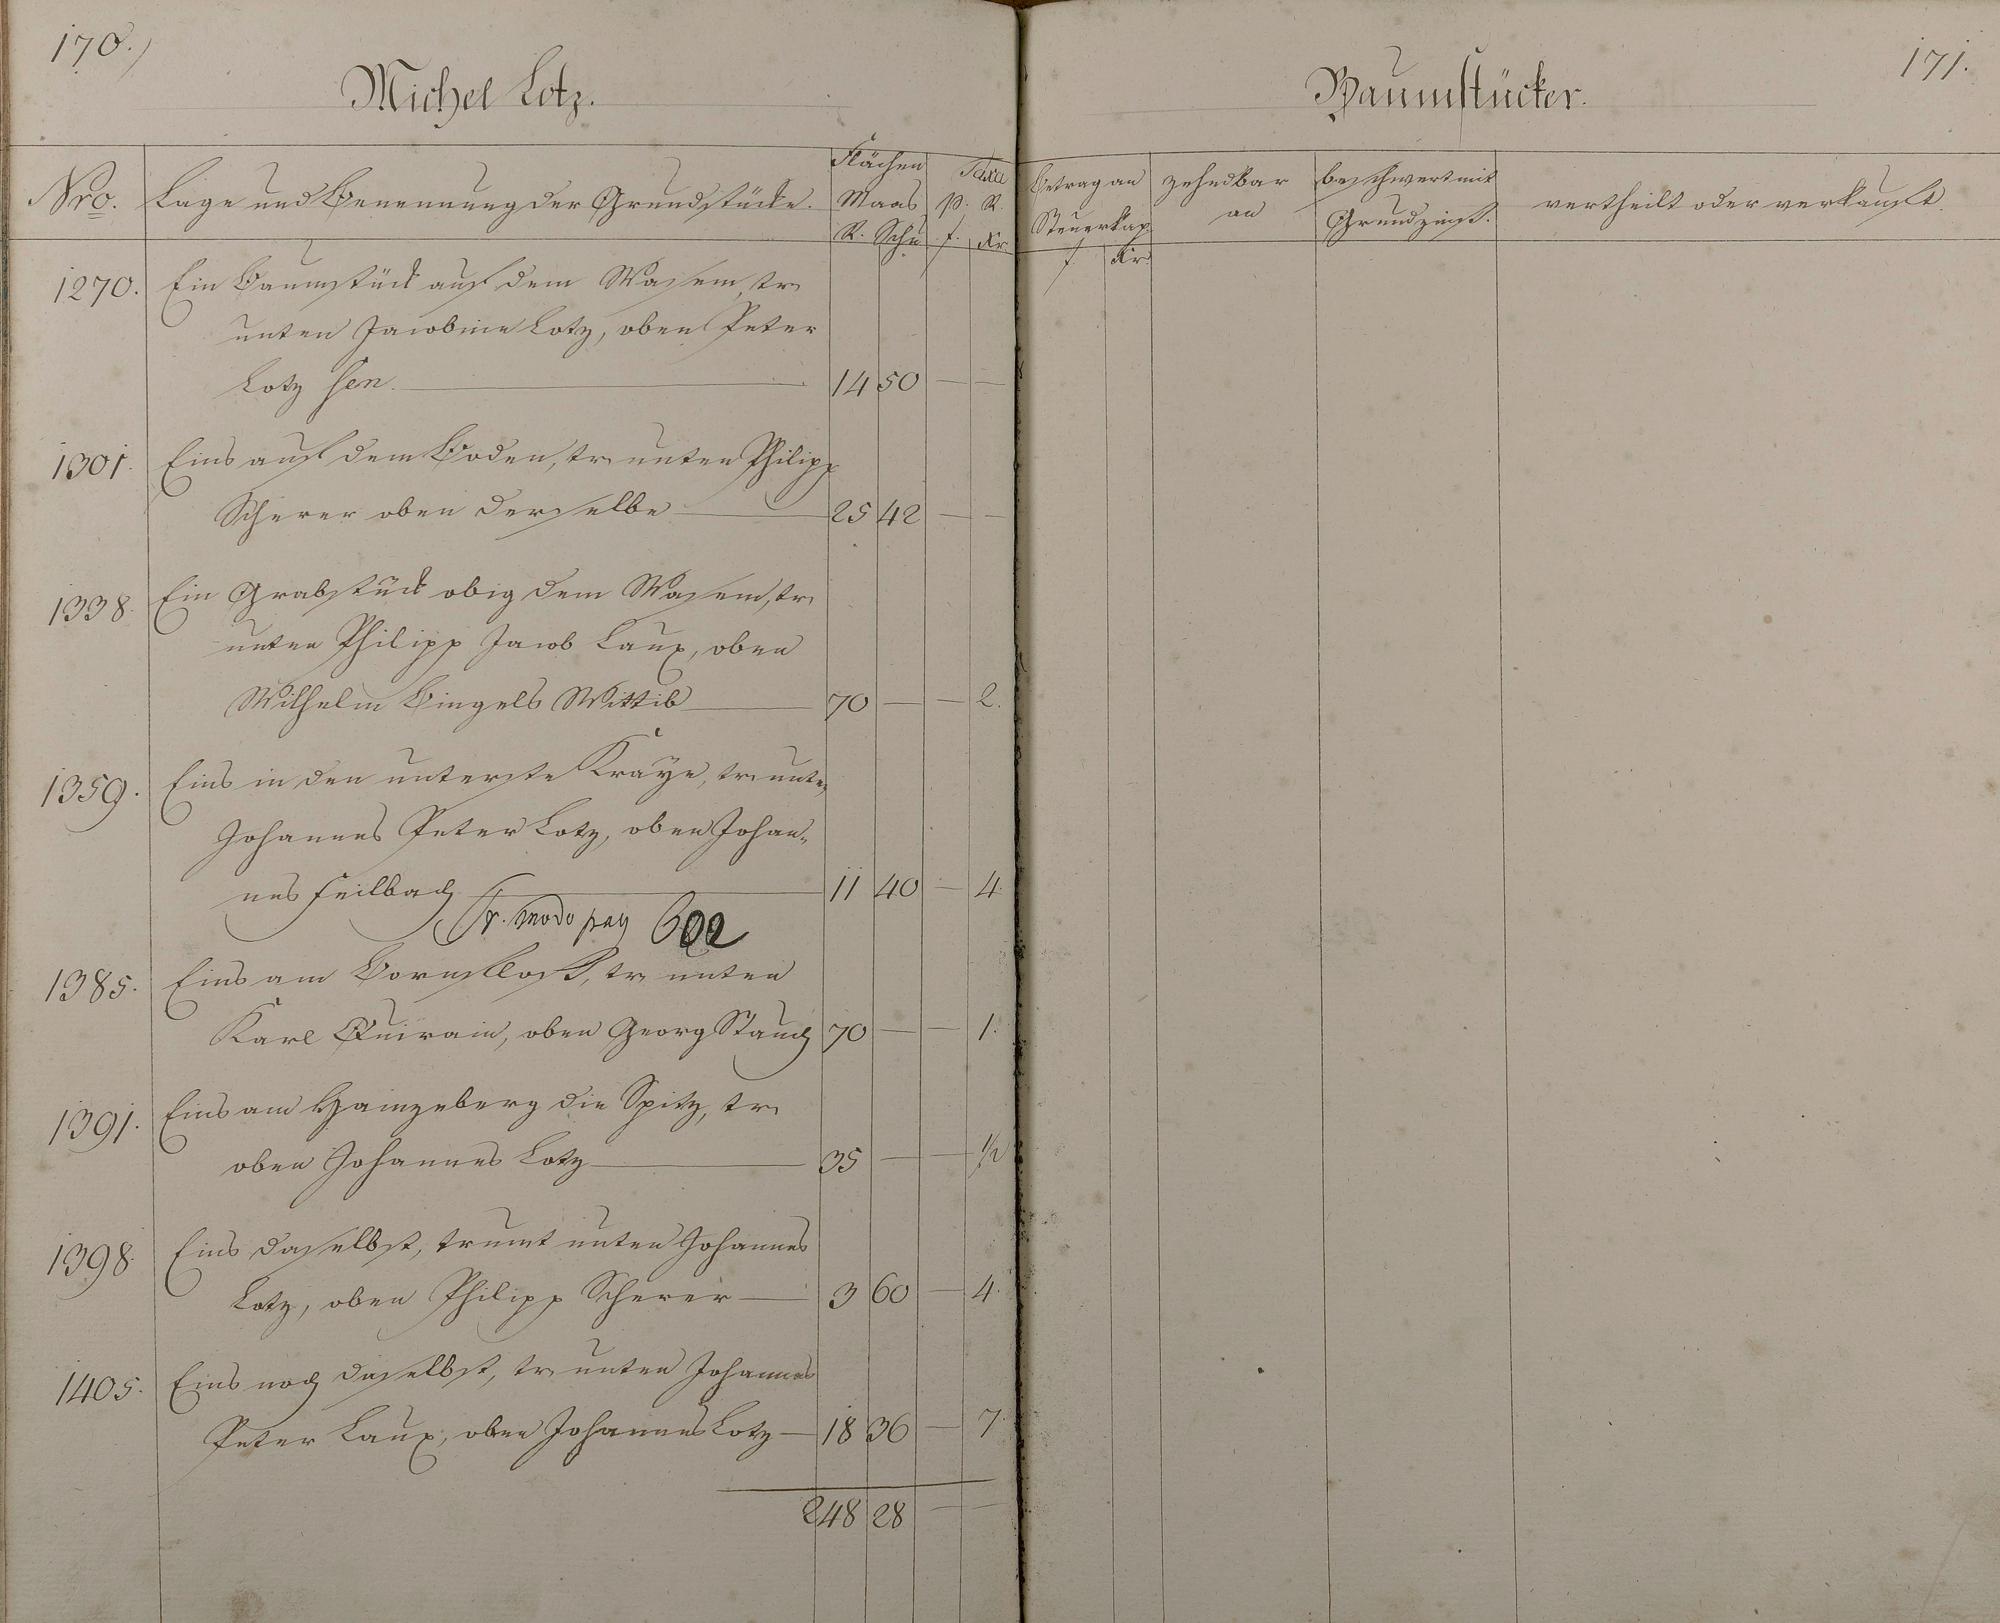 170.)
Michel Lotz.
Nro. Lage und Benennung der Grundstücke. Flächen Maas R. Schu Taxa p. R. f. Kr
1270. Ein Baumstück auf dem Wasem, tr.
unten Jacobine Lotz, oben Peter
Lotz sen. 14 50 — —
1301. Eins auf dem Boden, tr. unten Philipp
Scherer oben derselbe 25 42 — —
1338. Ein Grabstück obig dem Wasem, tr.
unten Philipp Jacob Laux, oben
Wilhelm Bingels Wittib 70 — — 2.
1359. Eins in den unterste Kraÿe, tr. unten
Johannes Peter Lotz, oben Johan-
nes Feilbach 11 40 — 4.
modo pag 602
1385. Eins am tr. unten
Karl Quirain, oben Georg Stauch 70 — — 1.
1391. Eins am Hainzeberg die Spitz, tr.
oben Johannes Lotz 35 — — 1/2
1398. Eins daselbst, trumt unten Johannes
Lotz, oben Philipp Scherer 3 60 — 4.
1405. Eins noch daselbst, tr. unten Johannes
Peter Laux, oben Johannes Lotz 18 36 — 7.
248 28 — —
171.
Baumstücker.
Betrag an Steuerkap. f. Kr. zehndbar an beschwert mit Grundzinß. vertheilt oder verkauft.